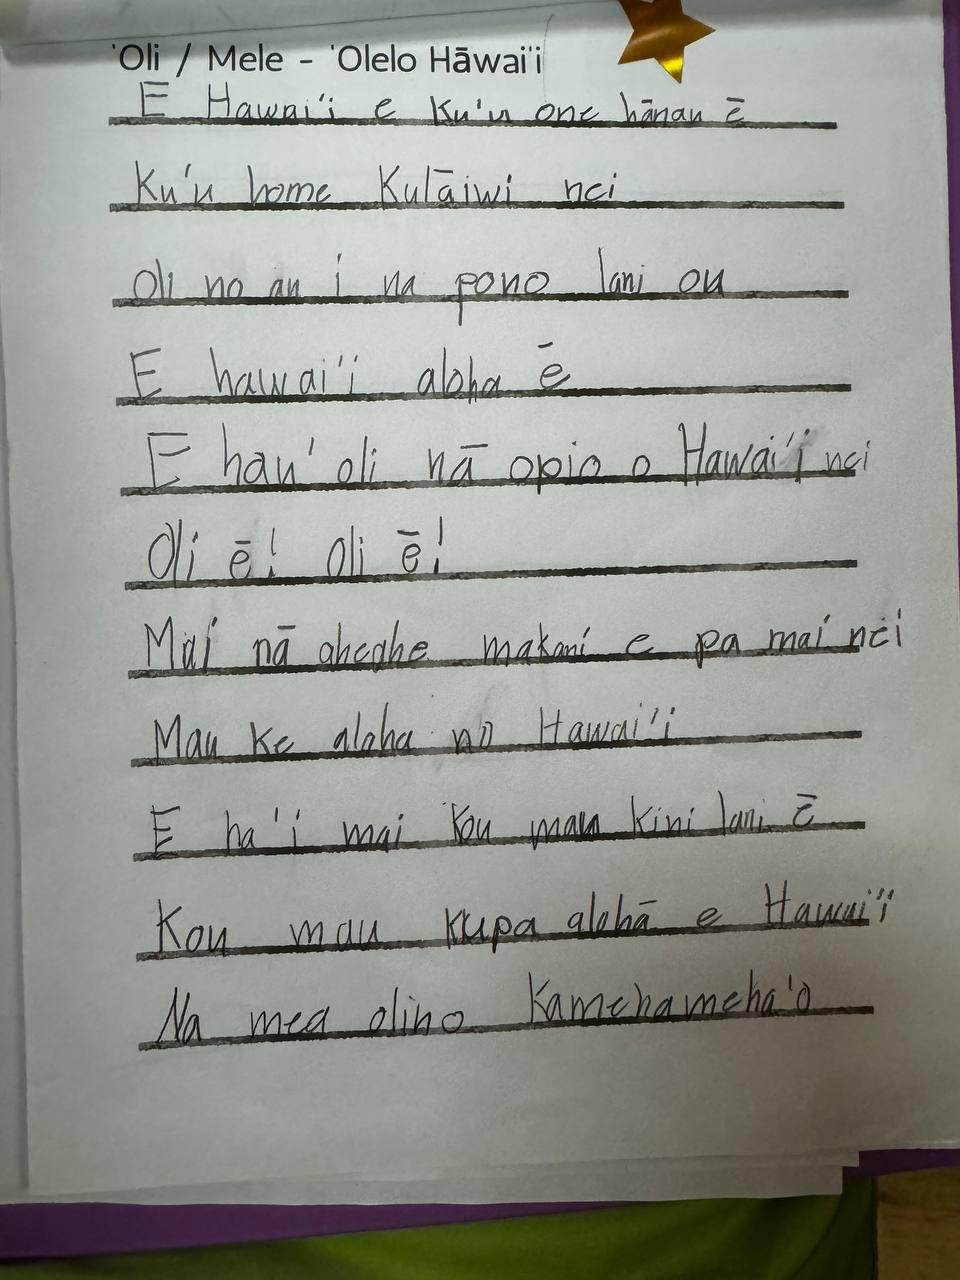 'Oli / Mele - 'Olelo Hāwai'i
E Hawai'i e Ku'u one hānau ē
Ku'u home Kulāiwi nei
Oli no au i na pono lani ou
E hawai'i aloha ē
E hau'oli nā opio o Hawai'i nei
Oli ē! Oli ē!
Mai nā aheahe makani e pa mai nei
Mau ke aloha no Hawai'i
E ha'i mai kou mau kini lani ē
Kou mau kupa alohā e Hawai'i
Na mea olino Kamehameha'o